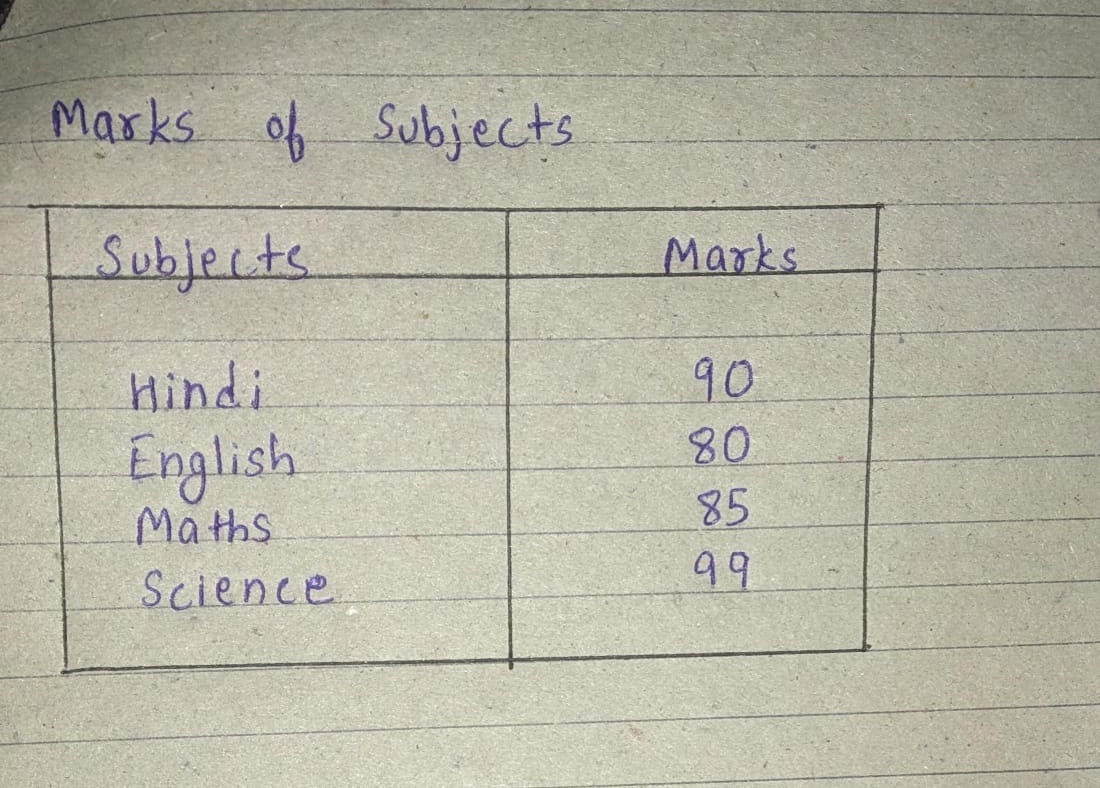 Marks of Subjects
Subjects Marks
Hindi 90
English 80
Maths 85
Science 99